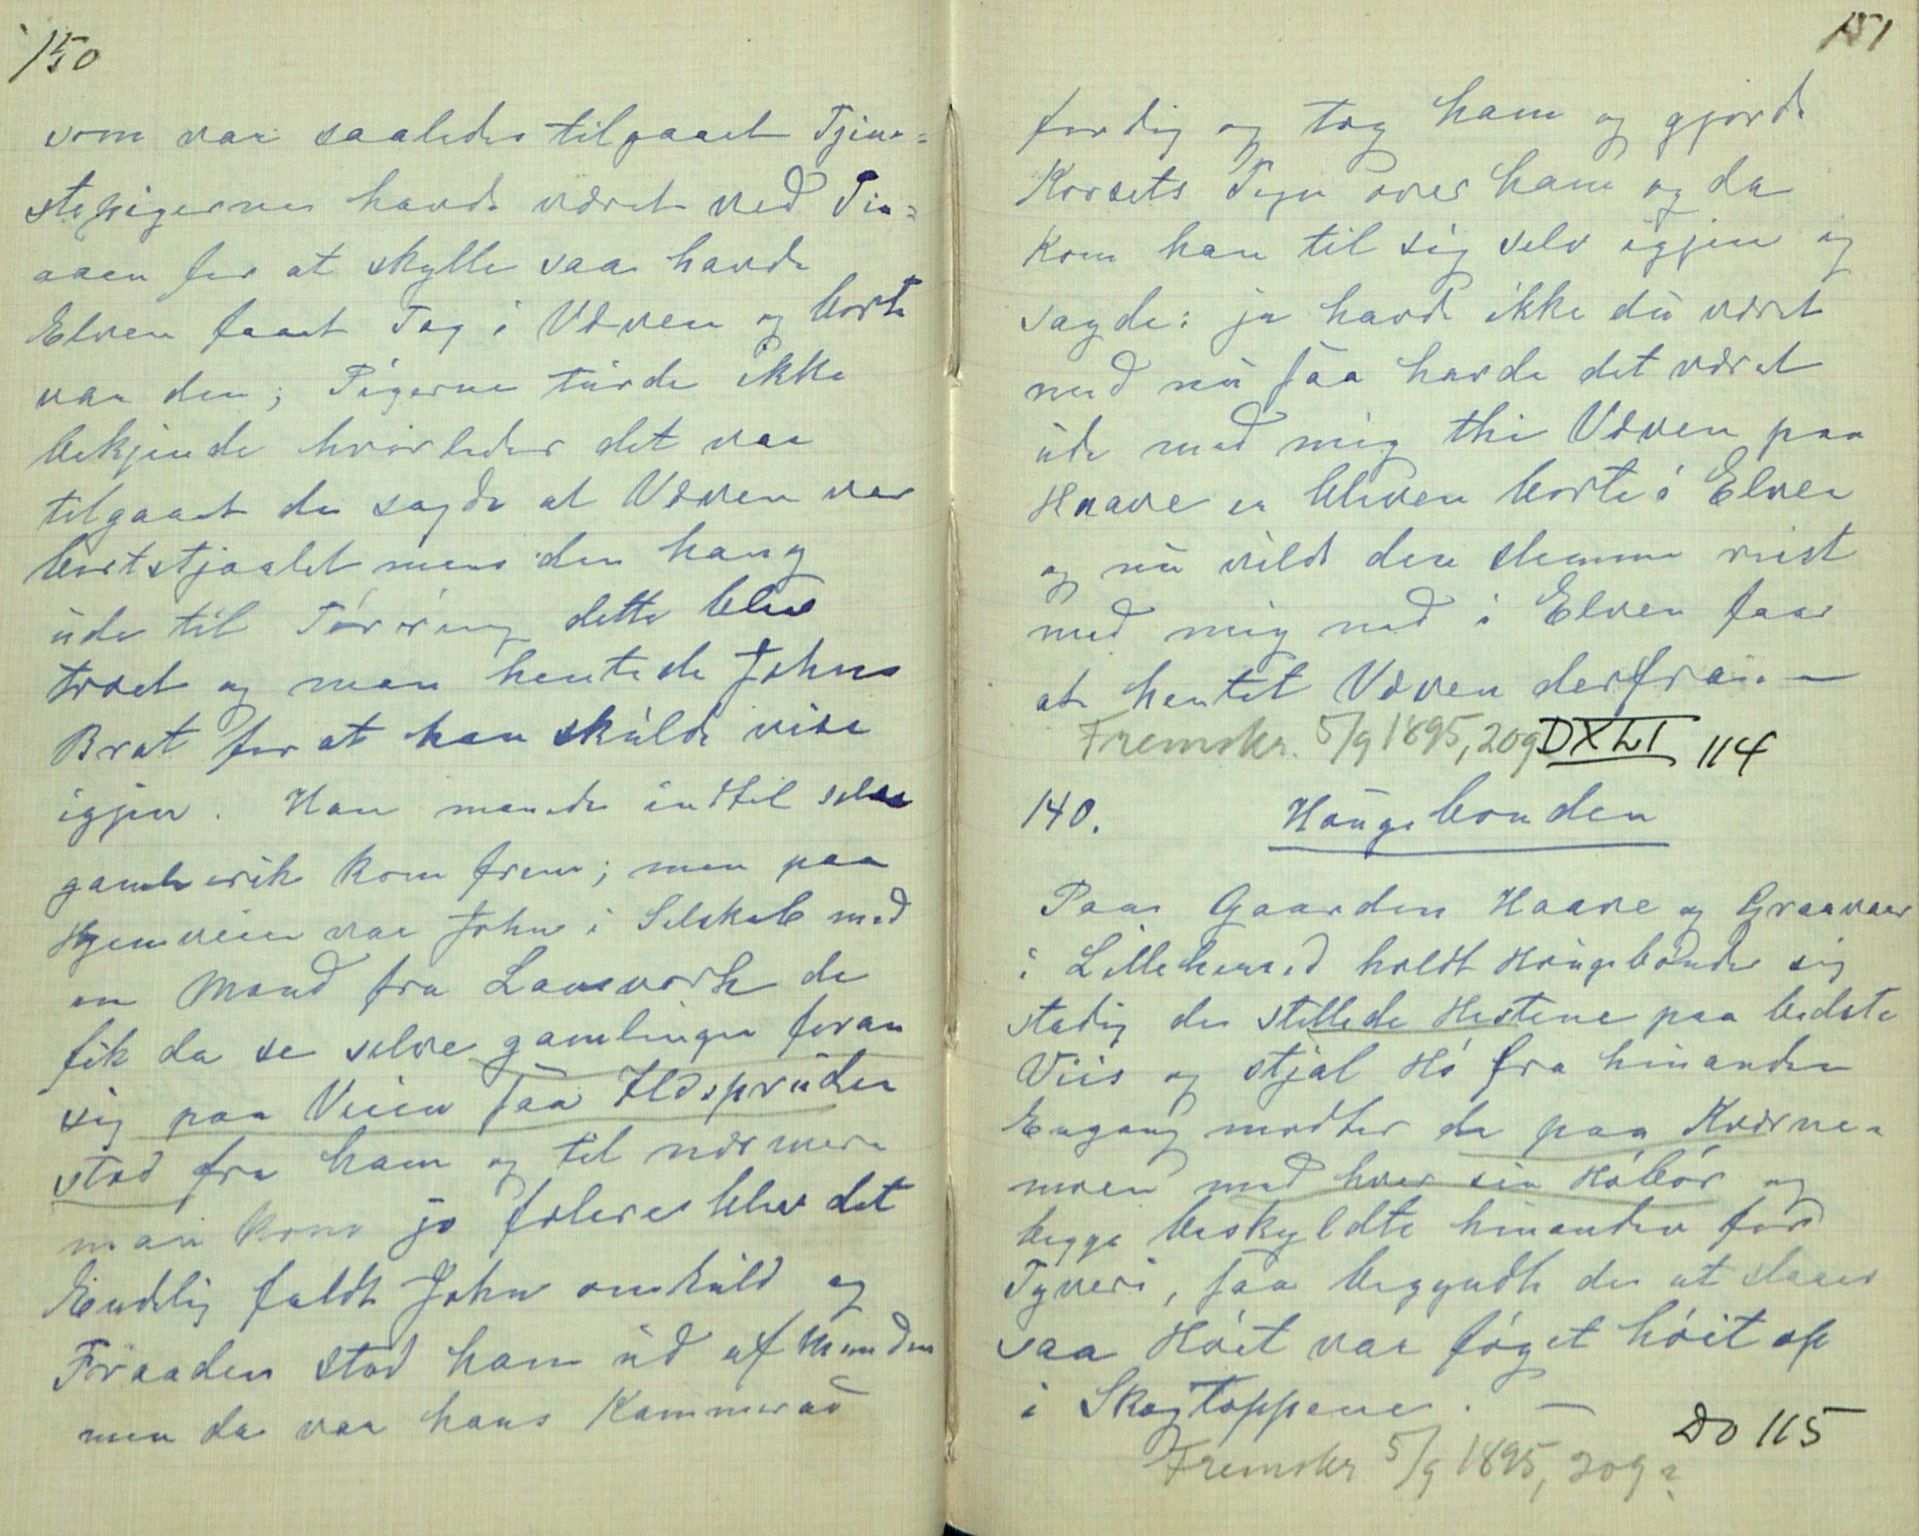 150
som var saaledes tilgaaet Tjene=
stepigerne havde været ved Tin=
aaen for at skylle saa havde
Elven faaet Tag i Væven og borte
var den; Pigerne turde ikke
bekjende hvorledes det var
tilgaaet de sagde at Væven var
bortstjaalet mens den hang
ude til Tørring dette blev
troet og man hentede John
Brat for at han skulde vise
igjen. Han manede indtil selve
gamleerik kom frem; men paa
Hjemveien var John i Selskab med
en Mand fra Lansverk de
fik da se selve gamlingen foran
sig paa Veien saa Ildspruden
stod fra ham og til nærmere
man kom jo blev det
Endelig faldt John omkuld og
Fraaden stod ham ud af Munden
men da var hans Kammerad
151
færdig og tog ham og gjorde
Korsets Tegn over ham og da
kom han til sig selv igjen og
sagde: ja havde ikke du været
med nu saa havde det været
ude med mig thi Væven paa
Haave er bleven borte i Elven
og nu vilde den slemme vist
med mig ned i Elven faar
at hentet Væven derfra. —
Fremskr. 5/9 1895, 209 DXLI 114
140. Haugebonden
Paa Gaarden Haave og Graavaar
i Lilleherred holdt Haugebonder sig
stadig de stellede Hestene paa bedste
Viis og stjal Hö fra hinanden
Engang mødtes de paa Kværne=
moen med hver sin Höbör og
begge beskyldte hinanden for
Tyveri, saa begyndte de at slaaes
saa Höet var föget höit op
i Skogtoppene. —
Do 115
Fremskr 5/9 1895, 209 2